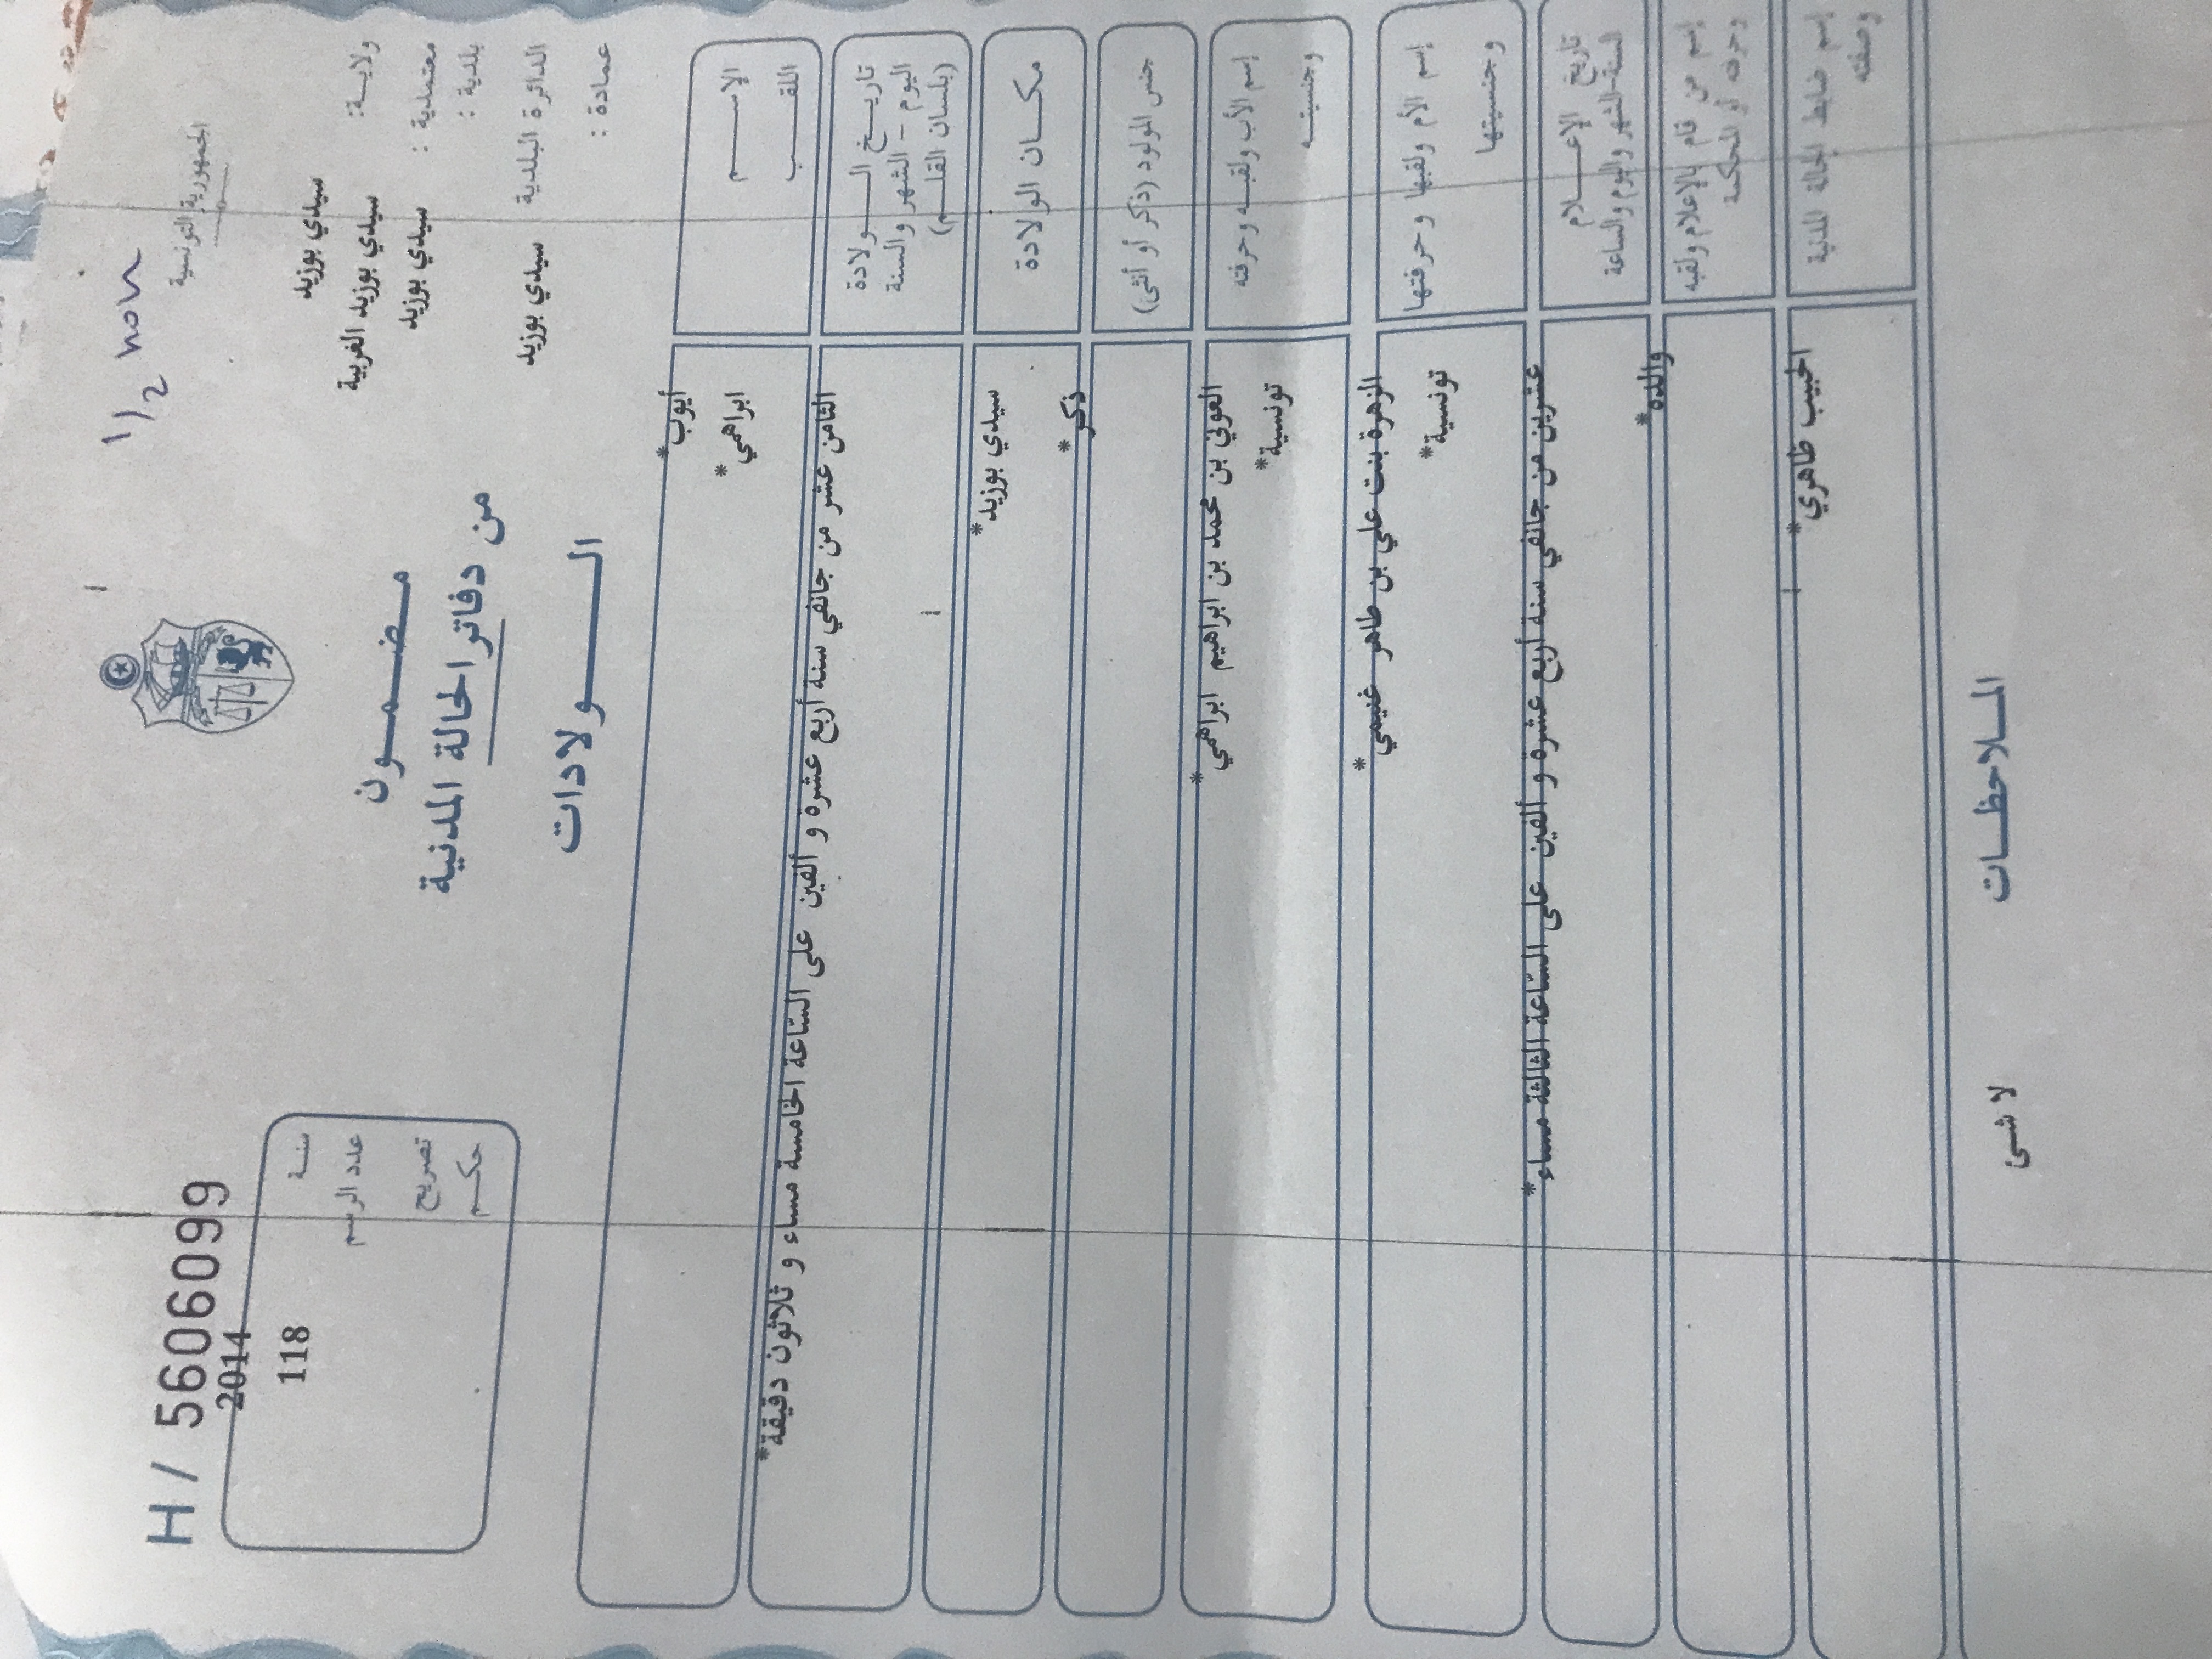 1/2 non
الجمهورية التونسية
ولايـــة: سيدي بوزيد
معتمدية : سيدي بوزيد الغربية
بلدية : سيدي بوزيد
الدائرة البلدية سيدي بوزيد
عمادة :
مضمـــون
من دفاتر الحالة المدنية
الـــولادات
H / 5606099
سنــة 2014
عدد الرسم 118
تصريح
حكـم
الإســـم أيوب*
اللقـــب ابراهمي*
تاريـــخ الـــولادة
اليوم - الشهر والسنة
(بلسان القلـــم)
الثامن عشر من جانفي سنة أربع عشرة و ألفين على السّاعة الخامسة مساء و ثلاثون دقيقة*
مكــان الولادة سيدي بوزيد*
جنس المولود (ذكر أو أنثى) ذكر*
إسم الأب ولقبـه وحرفته العوني بن محمد بن ابراهيم ابراهمي*
وجنسيتـــه تونسية*
إسم الأم ولقبها وحرفتها الزهرة بنت علي بن طاهر غنيمي*
وجنسيتها تونسية*
تاريخ الإعـــلام
السنة-الشهر واليوم والساعة
عشرين من جانفي سنة أربع عشرة و ألفين على السّاعة الثالثة مساء*
إسم من قام بالإعلام ولقبه
وحرفته أو المحكمة
والده*
إسم ضابط الحالة المدنية
وصفته
الحبيب طاهري*
المـلاحظـــات
لا شئ